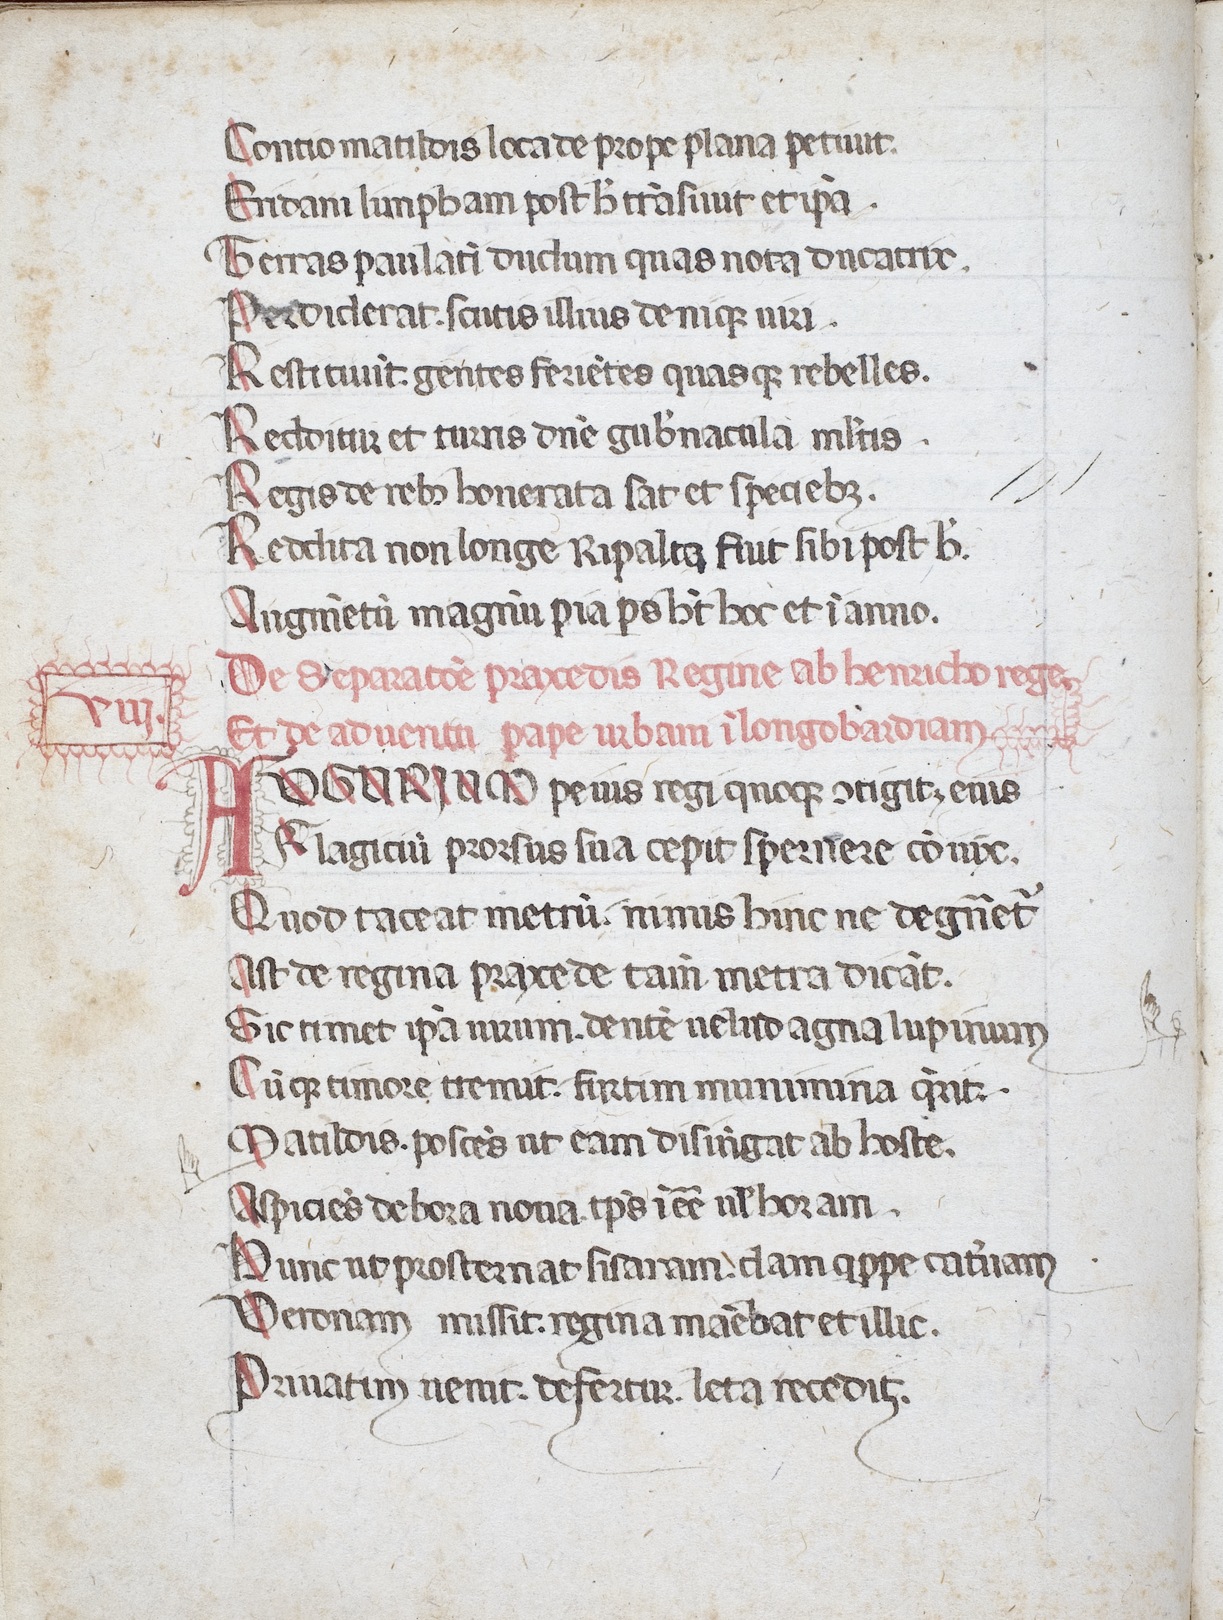 Contio matildis loca de prope plana petiuit.
Eridani limpham post h̄ trāsiuit et ip̄a .
Terras paulatī dudum quas nota ducatrix.
Perdiderat. scutis illius deniqꝫ uiri .
Restituūt. gentes feriētes quasqꝫ rebelles.
Redditur et turris dn̄e gub̄nacula ml̄tis .
Regis de rebꝫ honerata sat et speciebꝫ .
Reddita non longe Ripaltꝫ fiut sibi post h̄.
Augm̄etū magnū pia ps h̄t hoc et ī anno.
De Separatōe praxedis Regine ab henricho rege.
viij.
Et de aduentu pape urbani ī longobardiam
AUGURIUM peius regi quoqꝫ ꝯtigit, eius
Flagiciū prorsus sua cepit spernere cōnix.
Quod taceat metrū. nimis hinc ne degn̄et᷑
Ast de regina praxede tam̄ metra dicāt.
Sic timet ip̄a uirum. dentē uelud agna lupinum
Cūqꝫ timore tremit. furtim munimina q̄rit. .
Matildis. poscēs ut eam disiūgat ab hoste.
Aspiciēs debora noua. tp̄s īēē ul̄ horam .
Nunc ut prosternat sisaram. clam qppe cat̄uam
Veronam missit. regina maēbat et illic.
Priuatim uenit. defertur. leta recedit.